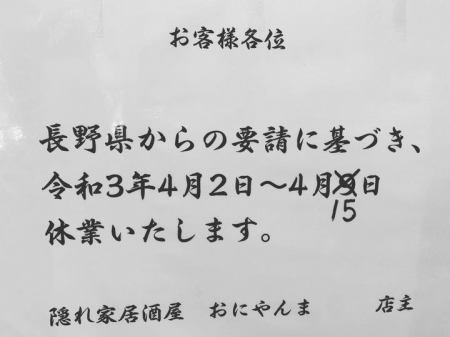 お客様各位
長野県からの要請に基づき、
令和3年4月2日〜4月15日
休業いたします。
隠れ家居酒屋 おにやんま 店主